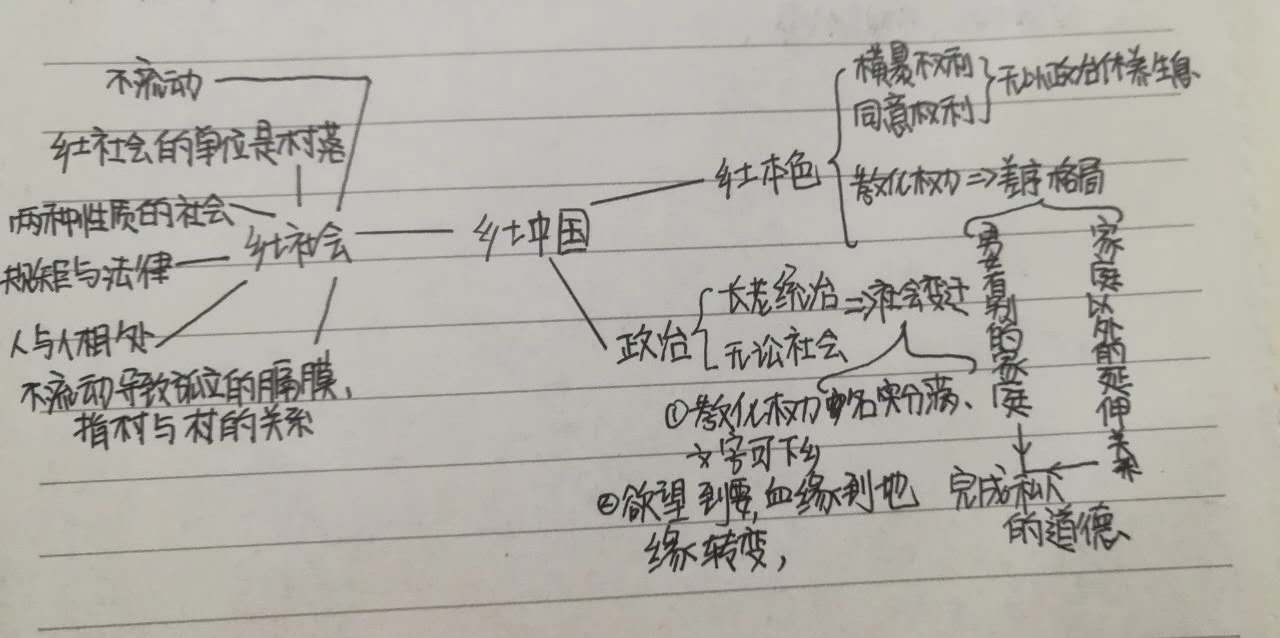 不流动
乡土社会的单位是村落
两种性质的社会
规矩与法律
人与人相处
不流动导致孤立的隔膜、
指村与村的关系
乡土社会
乡土中国
乡土本色
横暴权利
同意权利
无以政治休养生息、
教化权力=>差序格局
男女有别的家庭
家庭以外的延伸关系
完成私人
的道德、
政治
长老统治=>社会变迁
无讼社会
①教化权力中名实分离、
文字可下乡
②欲望到要,血缘到地
缘转变,